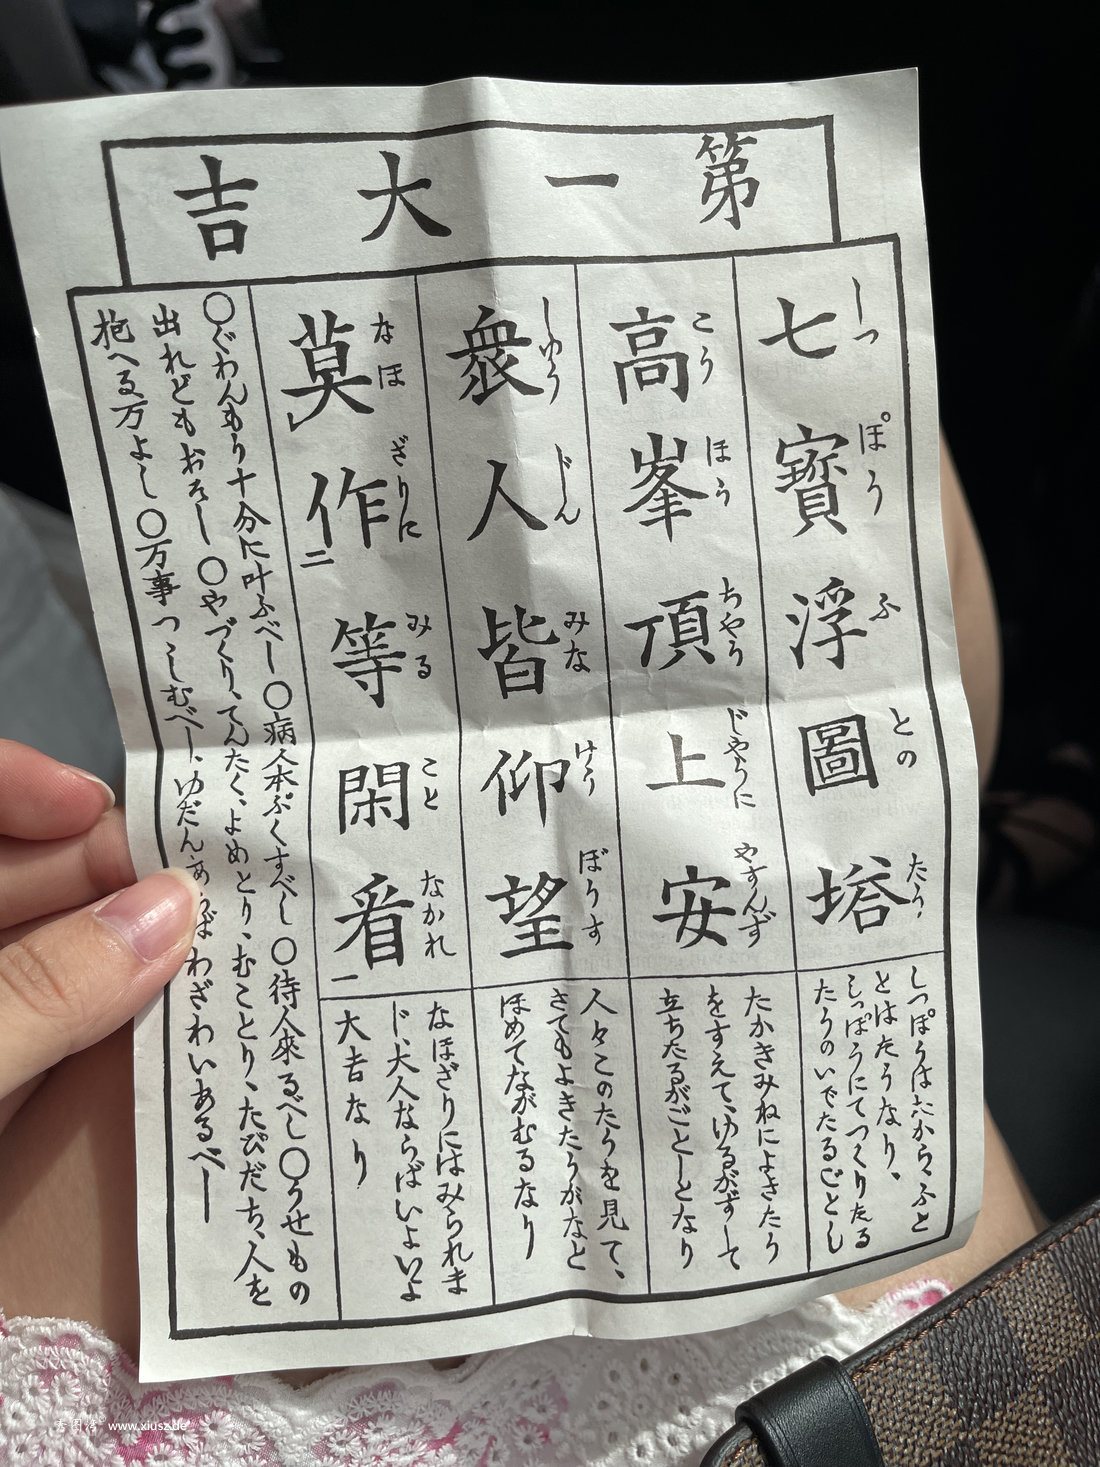 第一大吉
七寶浮圖塔
しつぽうふとのたう
しつぽうは たからゝ ふと
とはたうなり、
しつぽうにてつくりたる
たうのいでたるごとし
高峯頂上安
こうほうちやうじやうにやすんず
たかきみねによきたう
をすえて、ゆるがずして
立ちたるがごとしとなり
衆人皆仰望
しゆうじんみなげうぼうす
人々このたうを見て、
さてもよきたうがなと
ほめてながむるなり
莫レ作二等閑看一
なほざりにみることなかれ
なほざりにはみられま
じ、大人ならばいよいよ
大吉なり
○ぐわんもう十分に叶ふべし○病人本ぷくすべし○待人來るべし○うせもの
出れどもおそし○やづくり、てんたく、よめとり、むことり、たびだち、人を
抱へる万よし○万事つゝしむべし、ゆだんあらばわざわいあるべし
www.xiusz.de